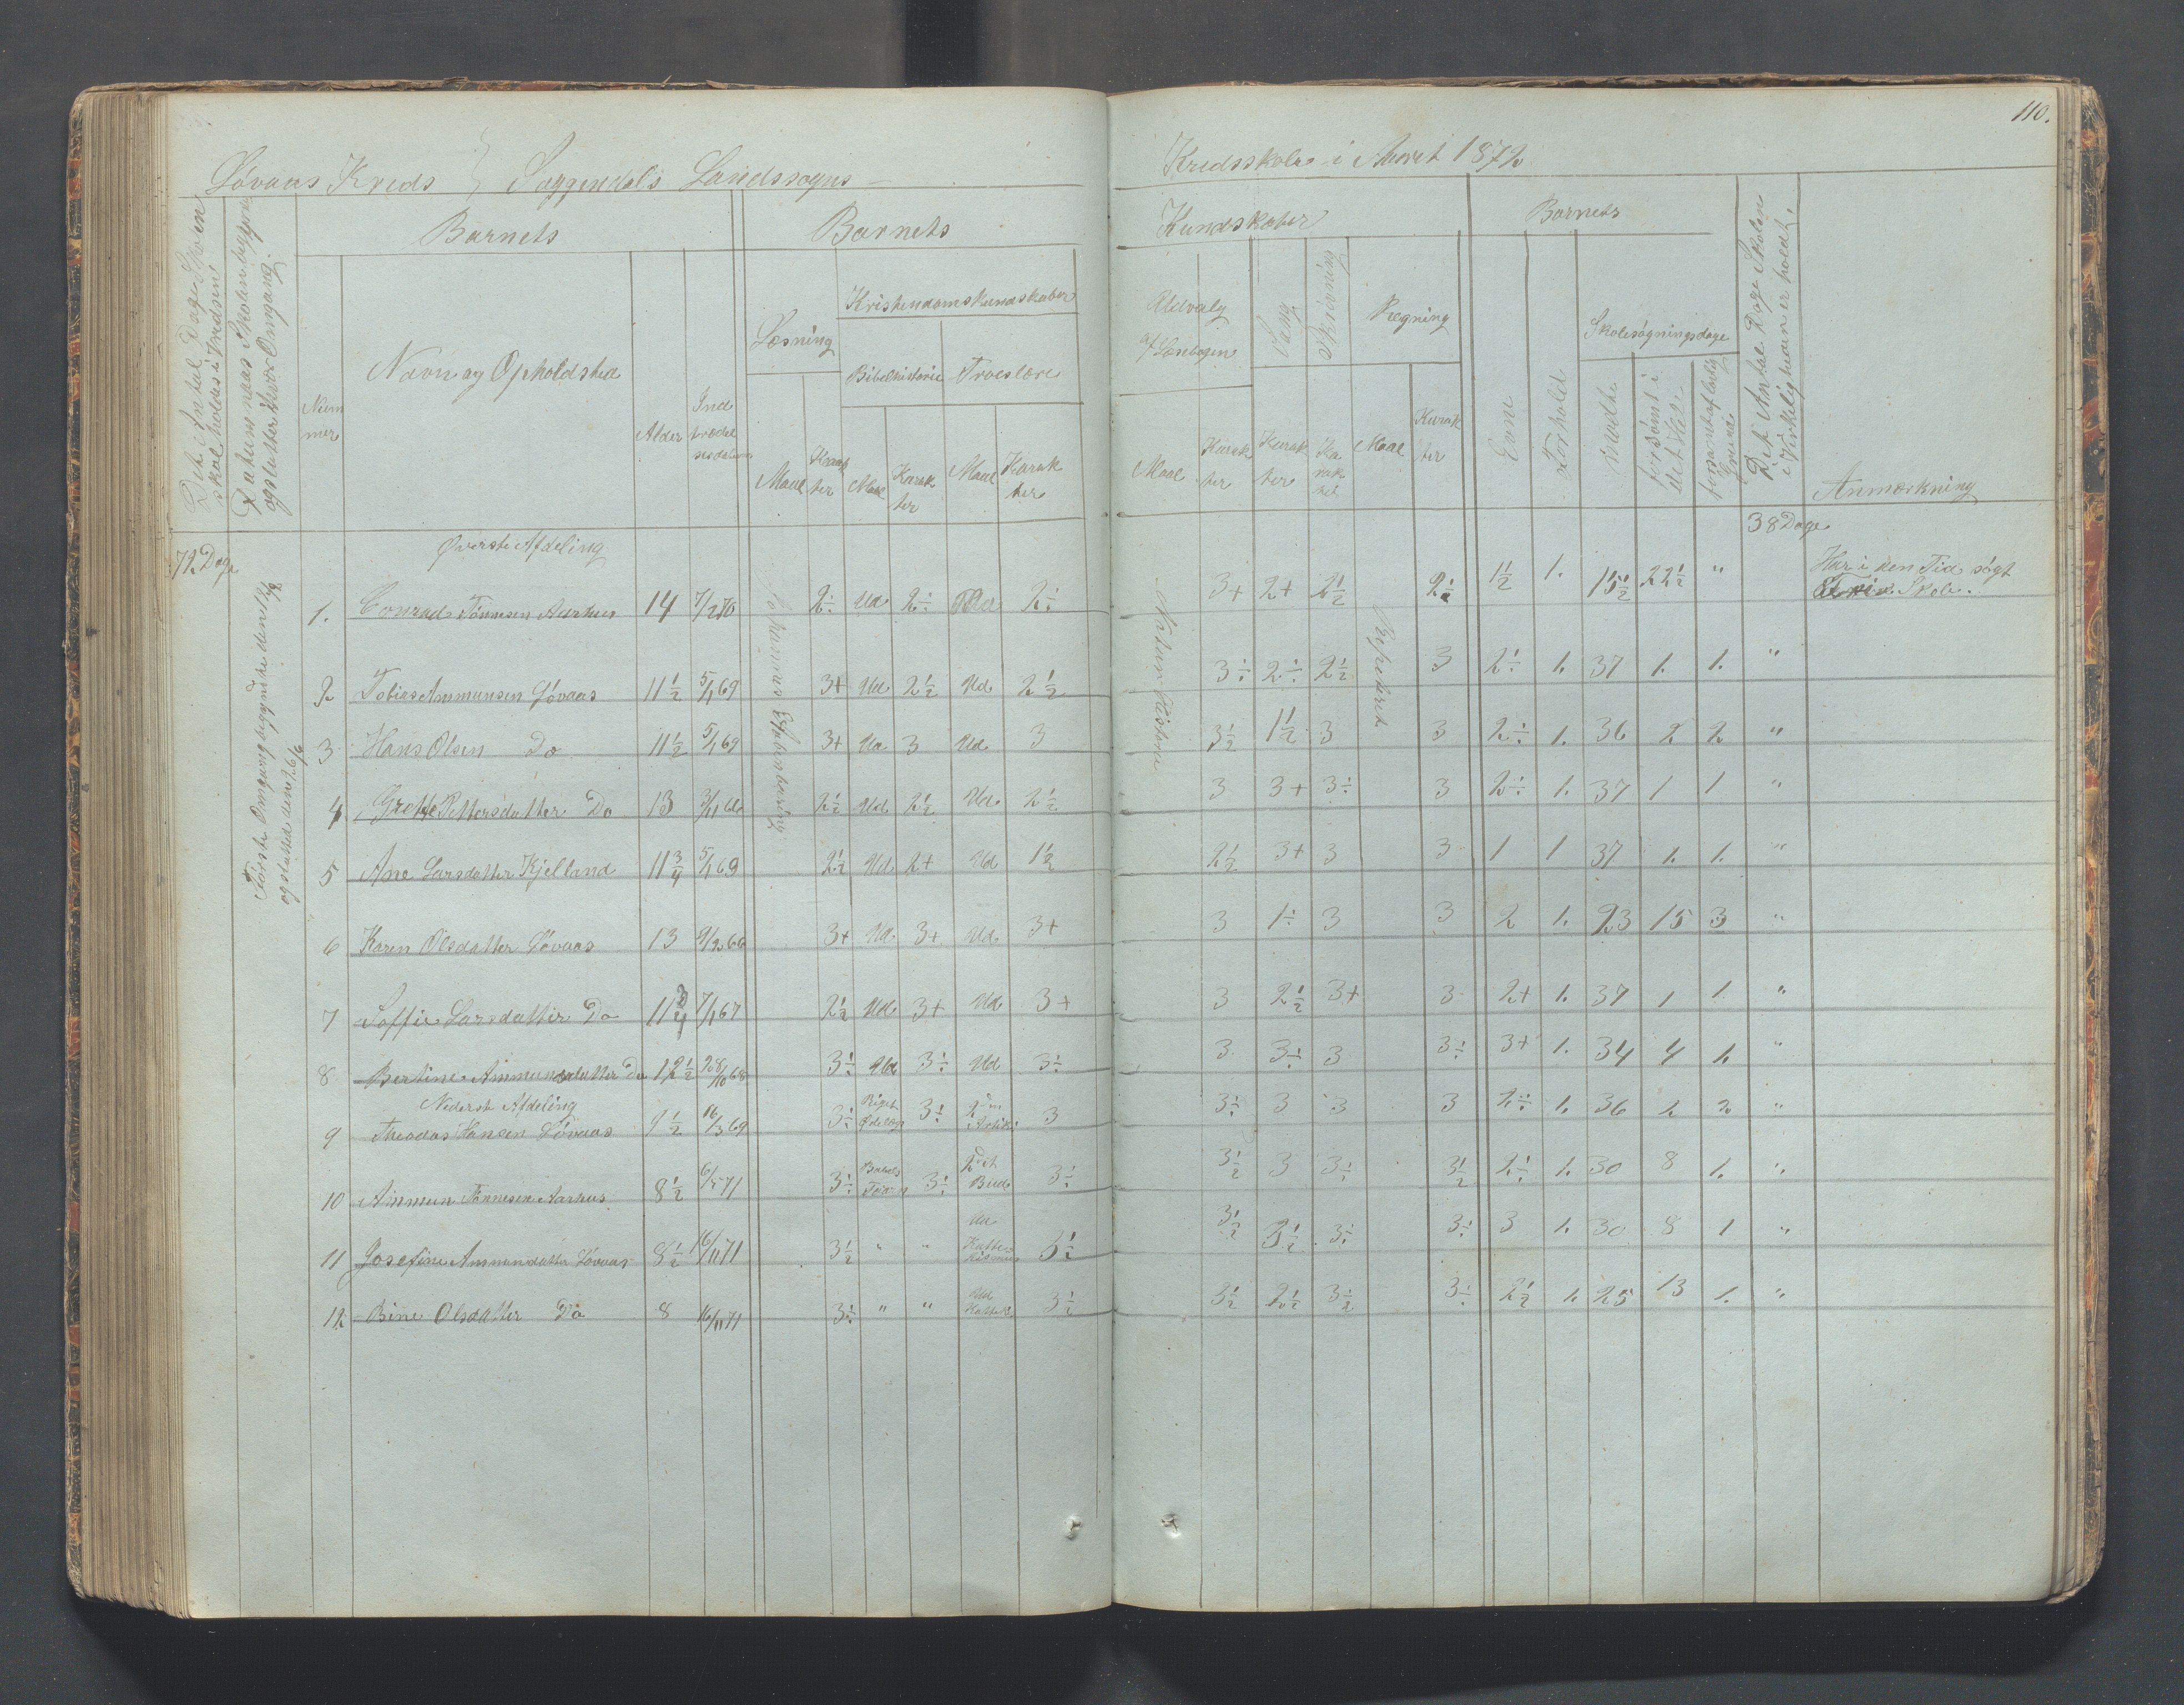 110.
Løvaas Kreds } Soggendals Landssogns
Kredsskole i Aaret 1872
Det Antal Dage Skolen skal holdes i Kredsen
Datum naar Skolen begyndte og slutter hver Omgang.
Barnets
Barnets
Kundskaber
Barnets
Det Antal Dage Skolen i Virkeligheden er holdt.
Num mer
Navn og Opholdsted
Alder
Ind trædel sesdatum
Læsning
Kristendomskundskaber
Bibelhistorie Troeslære
Udvalg af Læsebogen
Sang
Skrivning
Regning
Evne
Forhold
Skolesøgningsdage
mødte
forsømt i det Hele
forsømt af lovlig Grund
Maal Karak ter Maal Karak ter Maal Karak ter
Maal Karak ter Karak ter Ka rak ter Maal Karak ter
Anmærkning
72 Dage
38 Dage
Første Omgang begyndte den
og slutted den 26/6
Øverste Afdeling
Johannes Aabenbaring
Naturhistorie
1. Conrad Tønnesen Aarhus 14 7/2 70 2÷ Ud 2÷ Ud 2÷ 3+ 2+ 2½ 2÷ 1½ 1. 15½ 22½ " Har i den Tid søgt
Skole.
2 Tobias Ammunsen Løvaas 11½ 5/1 69 3+ Ud 2½ Ud 2½ 3÷ 2÷ 2½ 3 2÷ 1. 37 1. 1. "
3 Hans Olsen Do 11½ 5/1 69 3+ Ud 3 Ud 3 3½ 1½ 3 3 2÷ 1. 36 2 2 "
4 Grethe Pettersdatter Do 13 2½ Ud 2½ Ud. 2½ 3 3+ 3÷ 3 2÷ 1. 37 1 1 "
5 Ane Larsdatter Kjelland 11¾ 5/1 69 2½ Ud 2+ Ud 1½ 2½ 3+ 3 3 1 1 37 1. 1. "
6 Karen Olsdatter Løvaas 13 9/2 66 3+ Ud. 3+ Ud. 3+ 3 1÷ 3 3 2 1. 23 15 3 "
7 Soffie Larsdatter Do 11¾ 7/1 67 2½ Ud 3+ Ud 3+ 3 2½ 3+ 3 2+ 1. 37 1 1 "
8 Bertine Ammunsdatter Do 12½ 28/10 68 3÷ Ud 3÷ Ud 3÷ 3 3÷ 3 3÷ 3+ 1. 34 4 1. "
Nederste Afdeling
9 Theodor Hansen Løvaas 9½ 16/3 69 3÷ Riget Ødelæg 3÷ 2den Artik. 3 3÷ 3 3 3 2÷ 1. 36 2 2 "
10 Ammun Tønnesen Aarhus 8½ 6/5 71 3÷ Babels Taarn 3÷ 2det Bud 3÷ 3½ 3 3÷ 3½ 2÷ 1. 30 8 1. "
11 Josefine Ammundatter Løvaas 8½ 16/11 71 3½ " " Ud Kattekismus 3÷ 3½ 3½ 3÷ 3÷ 3 1. 30 8 1 "
12 Bine Olsdatter Do 8 16/11 71 3÷ " " Ud Kattek. 3½ 3½ 2½ 3½ 3÷ 2½ 1. 25 13 1. "